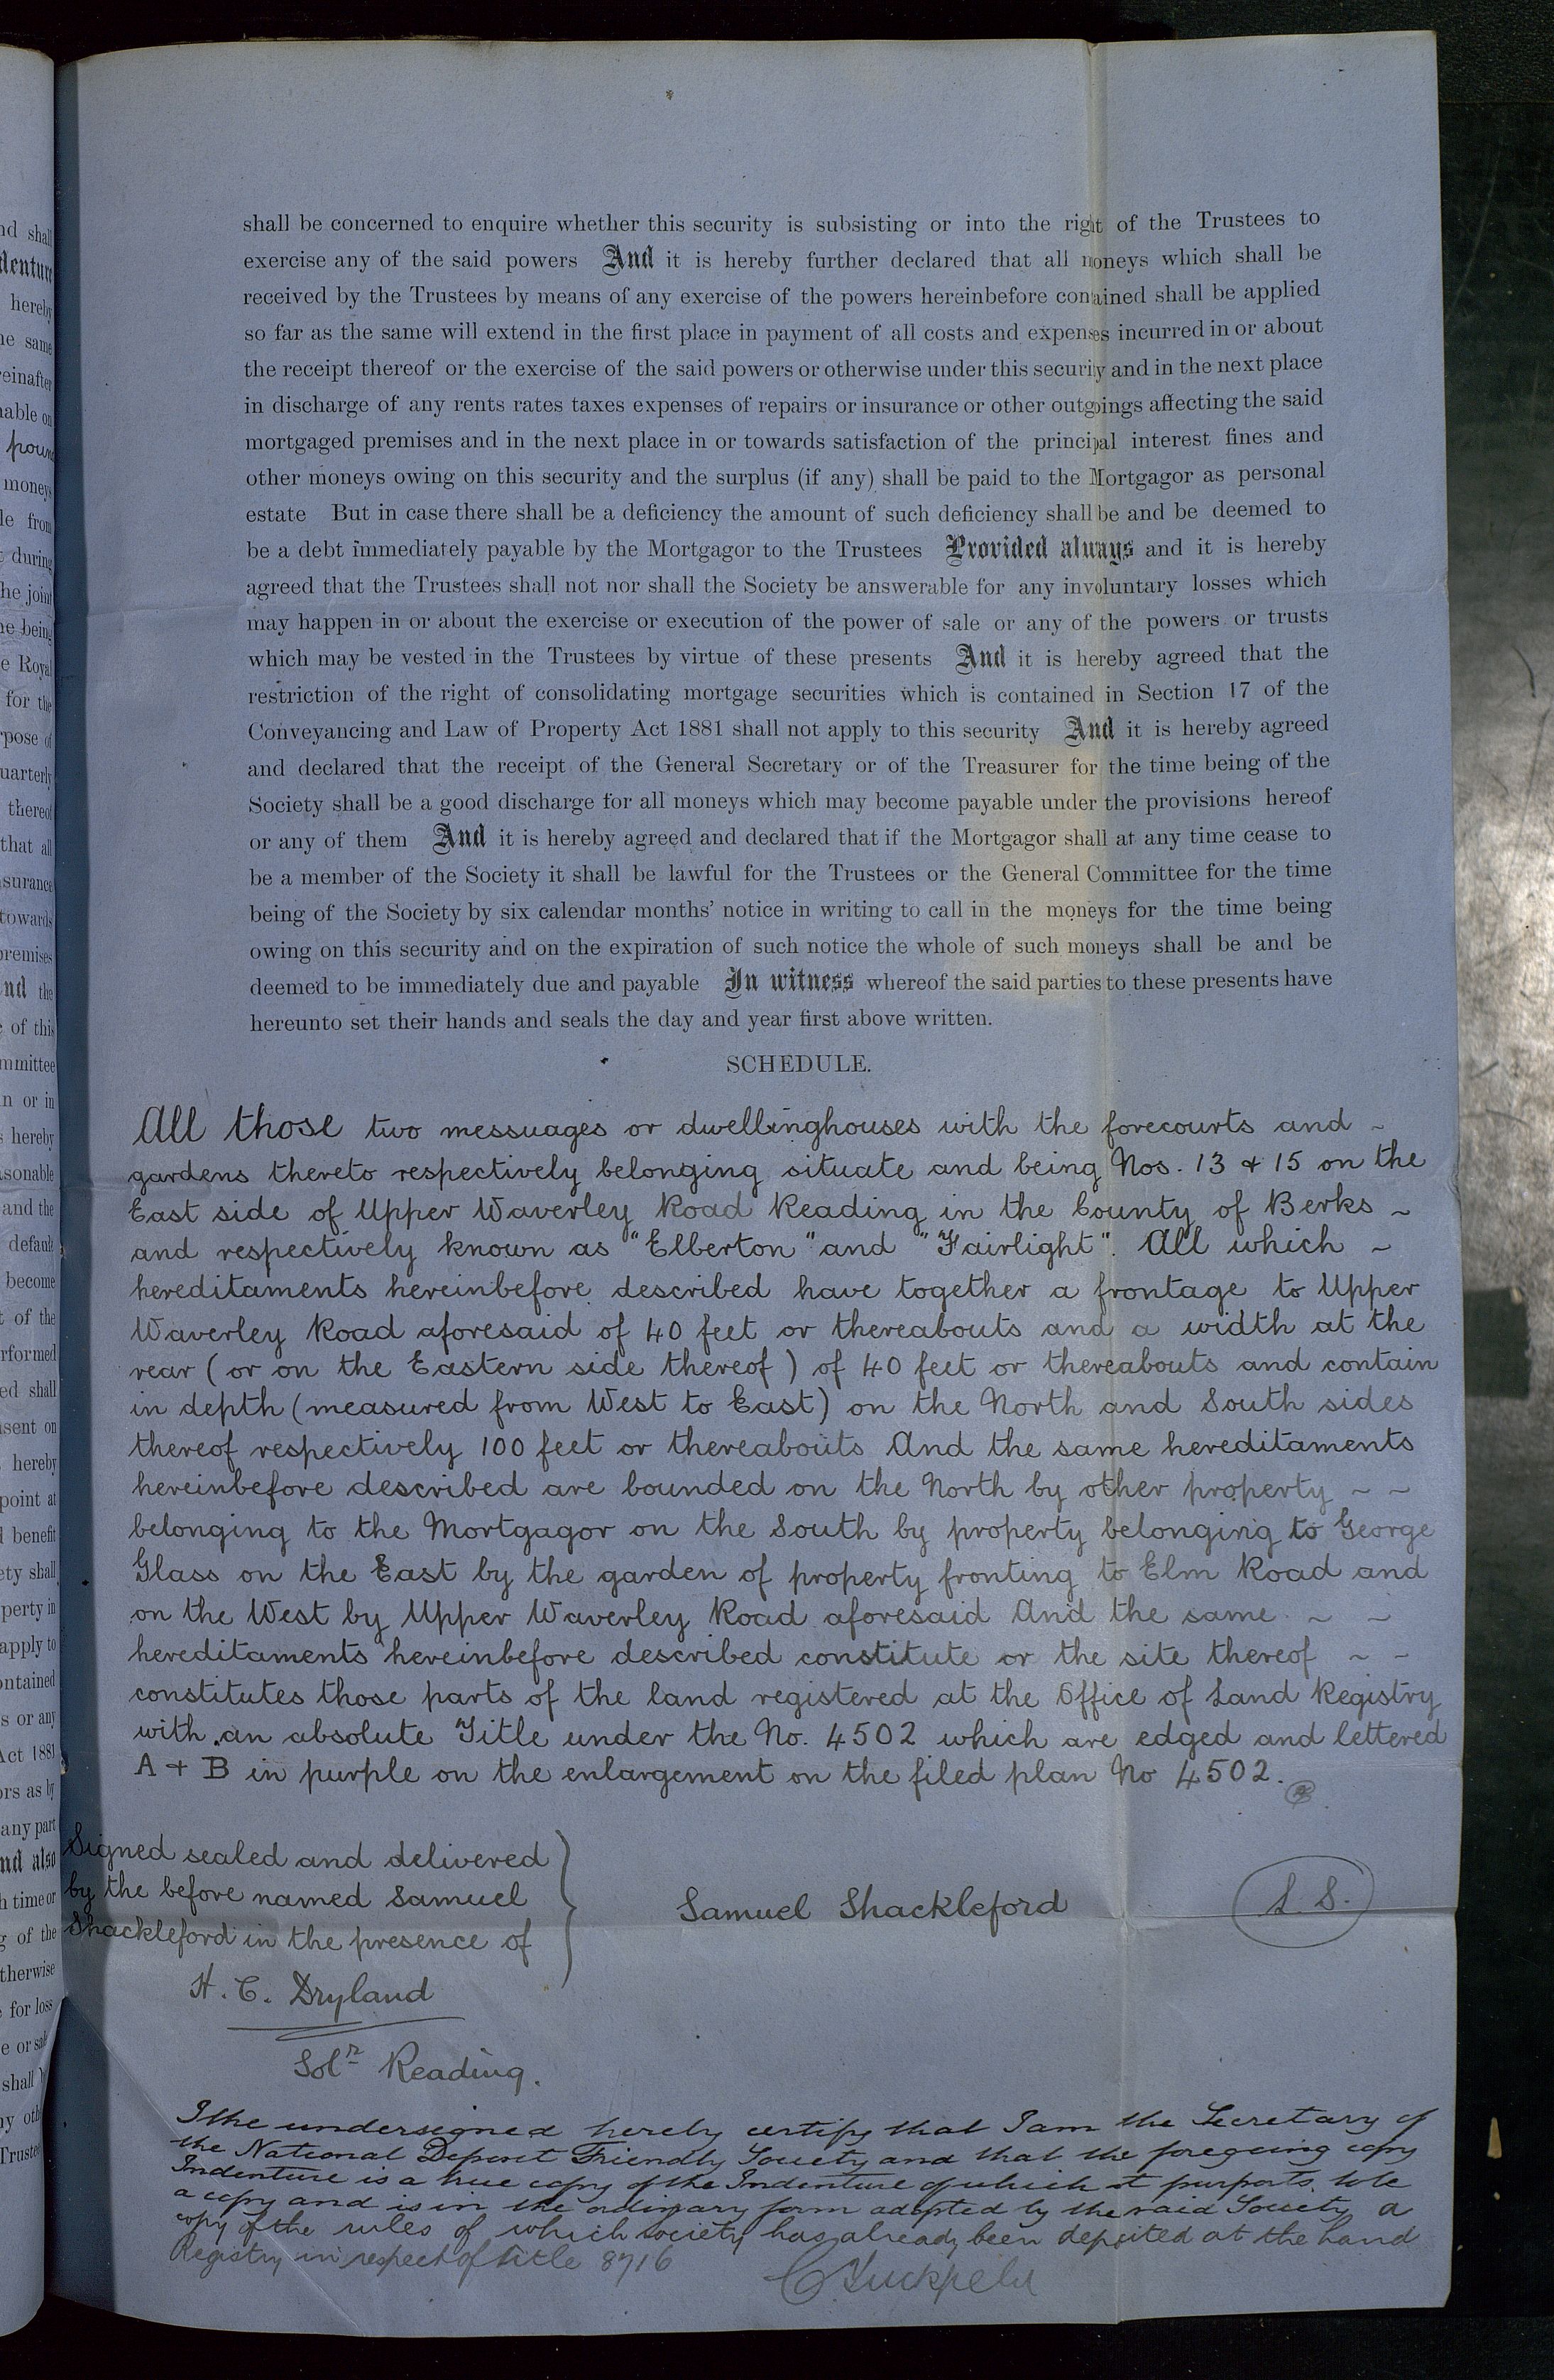 shall be concerned to enquire whether this security is subsisting or into the right of the Trustees to
exercise any of the said powers And it is hereby further declared that all moneys which shall be
received by the Trustees by means of any exercise of the powers hereinbefore contained shall be applied
so far as the same will extend in the first place in payment of all costs and expenses incurred in or about
the receipt thereof or the exercise of the said powers or otherwise under this security and in the next place
in discharge of any rents rates taxes expenses of repairs or insurance or other outgoings affecting the said
mortgaged premises and in the next place in or towards satisfaction of the principal interest fines and
other moneys owing on this security and the surplus (if any) shall be paid to the Mortgagor as personal
estate But in case there shall be a deficiency the amount of such deficiency shall be and be deemed to
be a debt immediately payable by the Mortgagor to the Trustees Provided always and it is hereby
agreed that the Trustees shall not nor shall the Society be answerable for any involuntary losses which
may happen in or about the exercise or execution of the power of sale or any of the powers or trusts
which may be vested in the Trustees by virtue of these presents And it is hereby agreed that the
restriction of the right of consolidating mortgage securities which is contained in Section 17 of the
Conveyancing and Law of Property Act 1881 shall not apply to this security And it is hereby agreed
and declared that the receipt of the General Secretary or of the Treasurer for the time being of the
Society shall be a good discharge for all moneys which may become payable under the provisions hereof
or any of them And it is hereby agreed and declared that if the Mortgagor shall at any time cease to
be a member of the Society it shall be lawful for the Trustees or the General Committee for the time
being of the Society by six calendar months' notice in writing to call in the moneys for the time being
owing on this security and on the expiration of such notice the whole of such moneys shall be and be
deemed to be immediately due and payable In witness whereof the said parties to these presents have
hereunto set their hands and seals the day and year first above written.
SCHEDULE.
All those two messuages or dwellinghouses with the forecourts and ~
gardens thereto respectively belonging situate and being Nos. 13 & 15 on the
East side of Upper Waverley Road Reading in the County of Berks ~
and respectively known as "Elberton" and "Fairlight". All which ~
hereditaments hereinbefore described have together a frontage to Upper
Waverley Road aforesaid of 40 feet or thereabouts and a width at the
rear (or on the Eastern side thereof) of 40 feet or thereabouts and contain
in depth (measured from West to East) on the North and South sides
thereof respectively 100 feet or thereabouts And the same hereditaments
hereinbefore described are bounded on the North by other property ~ ~
belonging to the Mortgagor on the South by property belonging to George
Glass on the East by the garden of property fronting to Elm Road and
on the West by Upper Waverley Road aforesaid And the same ~ ~
hereditaments hereinbefore described constitute or the site thereof ~ ~
constitutes those parts of the land registered at the Office of Land Registry
with an absolute Title under the No. 4502 which are edged and lettered
A + B in purple on the enlargement on the filed plan No 4502.
Signed sealed and delivered
by the before named Samuel
Shackleford in the presence of
Samuel Shackleford
L. S.
H. C. Dryland
Solr Reading.
I the undersigned hereby certify that I am the Secretary of
the National Deposit Friendly Society and that the foregoing copy
Indenture is a true copy of the Indenture of which it purports to be
a copy and is in the ordinary form adopted by the said Society a
copy of the rules of which society has already been deposited at the Land
Registry in respect of title 8716